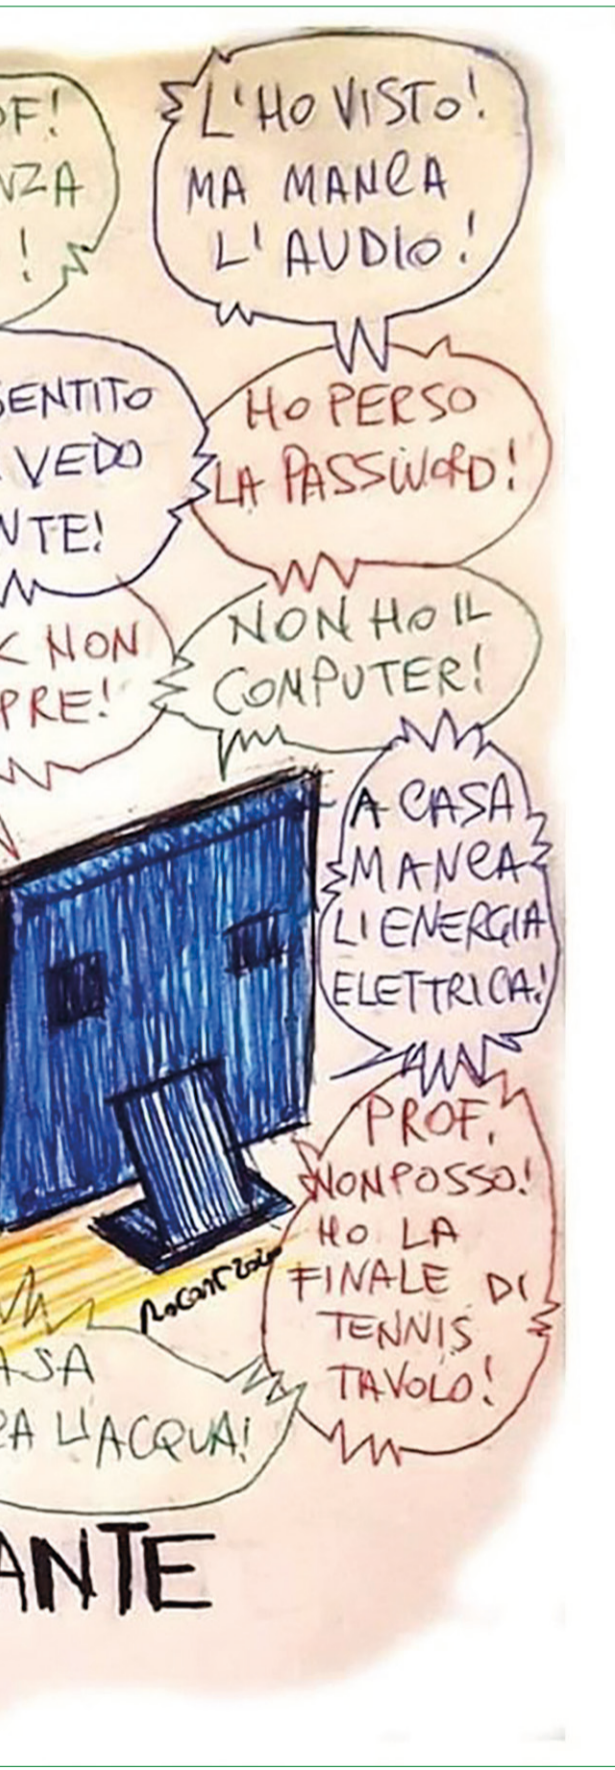 OF!
NZA
!
L'HO VISTO!
MA MANCA
L'AUDIO!
SENTITO
VEDO
NTE!
HO PERSO
LA PASSWORD!
K NON
PRE!
NON HO IL
COMPUTER!
A CASA
MANCA
L'ENERGIA
ELETTRICA!
PROF,
NON POSSO!
HO LA
FINALE DI
TENNIS
TAVOLO!
ASA
CA L'ACQUA!
ANTE